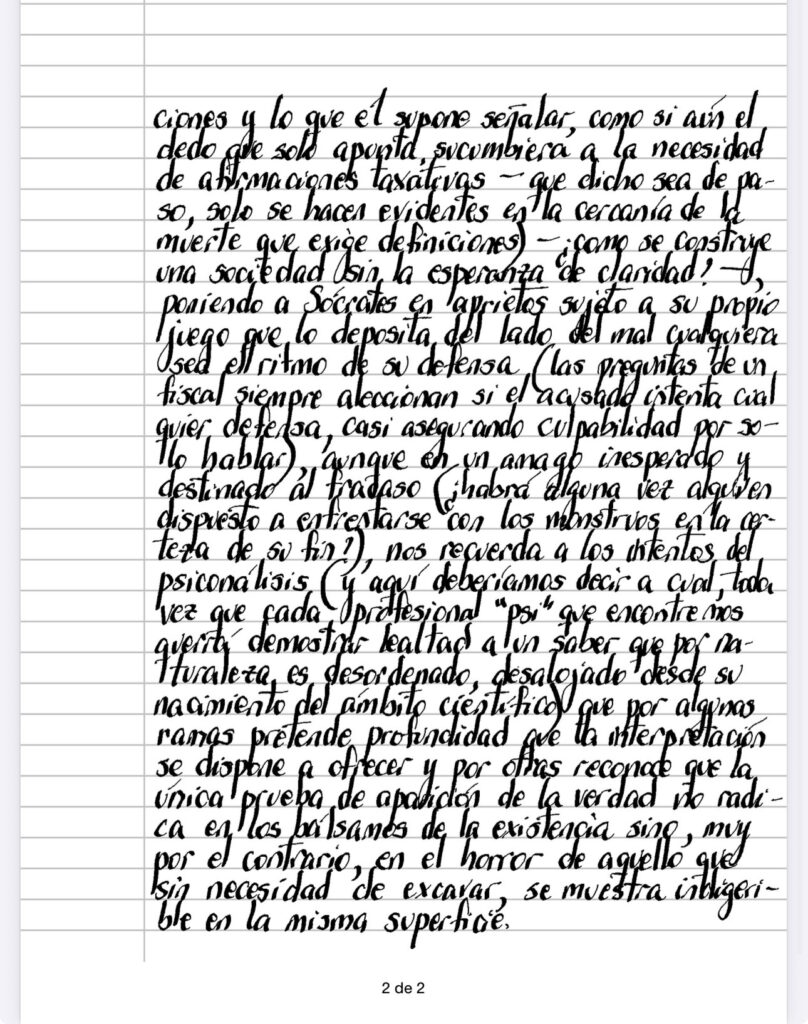 ciones y lo que él supone señalar, como si aún el
dedo que solo apunta, sucumbiera a la necesidad
de afirmaciones taxativas — que dicho sea de pa-
so, solo se hacen evidentes en la cercanía de la
muerte que exige definiciones) — ¿como se construye
una sociedad sin la esperanza de claridad? —),
poniendo a Sócrates en aprietos sujeto a su propio
juego que lo deposita del lado del mal cualquiera
sea el ritmo de su defensa (las preguntas de un
fiscal siempre aleccionan si el acusado intenta cual
quier defensa, casi asegurando culpabilidad por so-
lo hablar), aunque en un amago inesperado y
destinado al fracaso (¿habrá alguna vez alguien
dispuesto a enfrentarse con los monstruos en la cer-
teza de su fin?), nos recuerda a los intentos del
psiconálisis (y aquí deberíamos decir a cual, toda
vez que cada profesional "psi" que encontremos
querrá demostrar lealtad a un saber que por na-
turaleza, es desordenado, desalojado desde su
nacimiento del ámbito científico) que por algunas
ramas pretende profundidad que la interpretación
se dispone a ofrecer y por otras reconoce que la
única prueba de aparición de la verdad no radi-
ca en los bálsamos de la existencia sino, muy
por el contrario, en el horror de aquello que
sin necesidad de excavar, se muestra indigeri-
ble en la misma superficie.
2 de 2